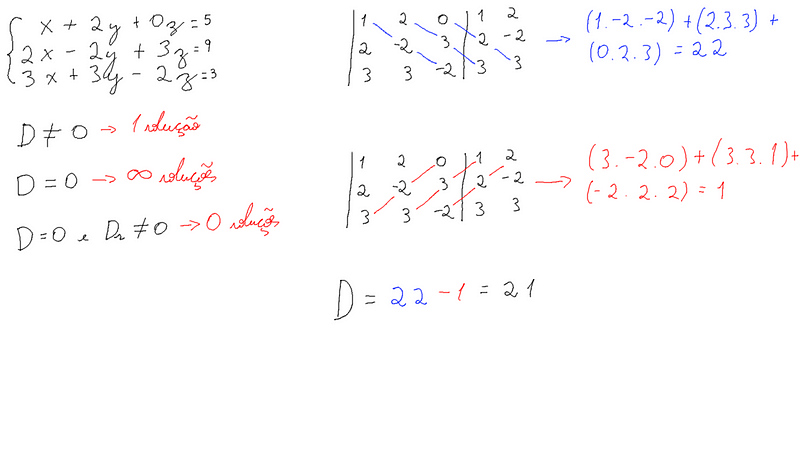 x + 2y + 0z = 5
2x - 2y + 3z = 9
3x + 3y - 2z = 3
D ≠ 0 → 1 solução
D = 0 → ∞ soluções
D = 0 e Dn ≠ 0 → 0 soluções
1 2 0 1 2
2 -2 3 2 -2
3 3 -2 3 3
→ (1.-2.-2) + (2.3.3) +
(0.2.3) = 22
1 2 0 1 2
2 -2 3 2 -2
3 3 -2 3 3
→ (3.-2.0) + (3.3.1) +
(-2.2.2) = 1
D = 22 - 1 = 21